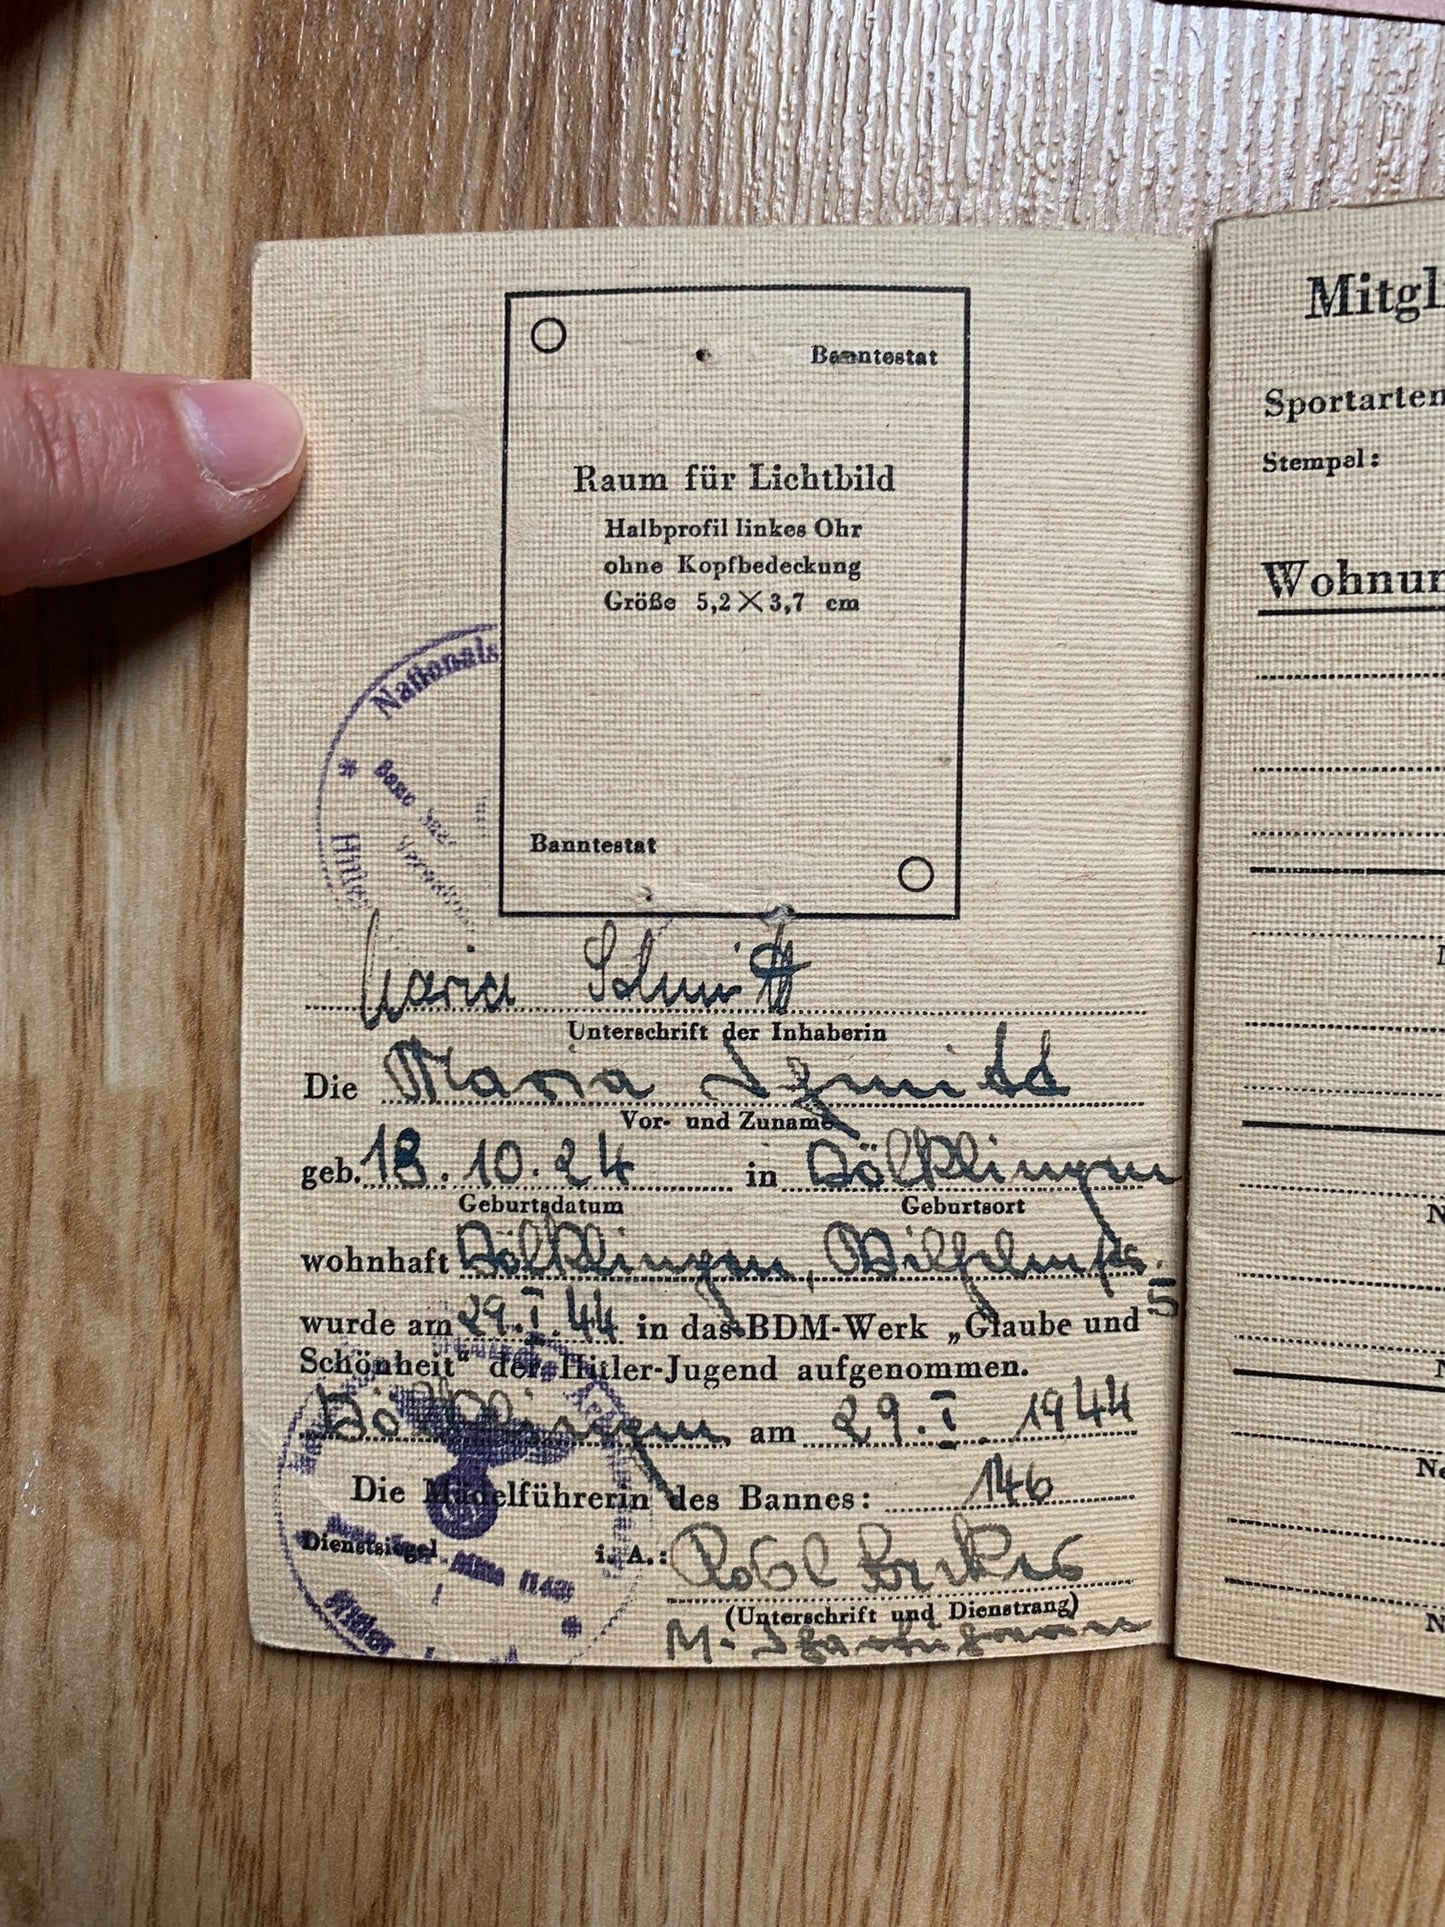 Banntestat
Raum für Lichtbild
Halbprofil linkes Ohr
ohne Kopfbedeckung
Größe 5,2 × 3,7 cm
Nationals
Hitler
Banntestat
Maria Schmitt
Unterschrift der Inhaberin
Die Maria Schmitt
Vor- und Zuname
geb. 18.10.24 in Völklingen
Geburtsdatum Geburtsort
wohnhaft Völklingen, Wilhelmstr.
5
wurde am 29.I.44 in das BDM-Werk „Glaube und
Schönheit“ der Hitler-Jugend aufgenommen.
Völklingen am 29.I.1944
Die Mädelführerin des Bannes: 146
Dienstsiegel i. A.:
(Unterschrift und Dienstrang)
M.
Hitler
Mitgl
Sportarten
Stempel:
Wohnun